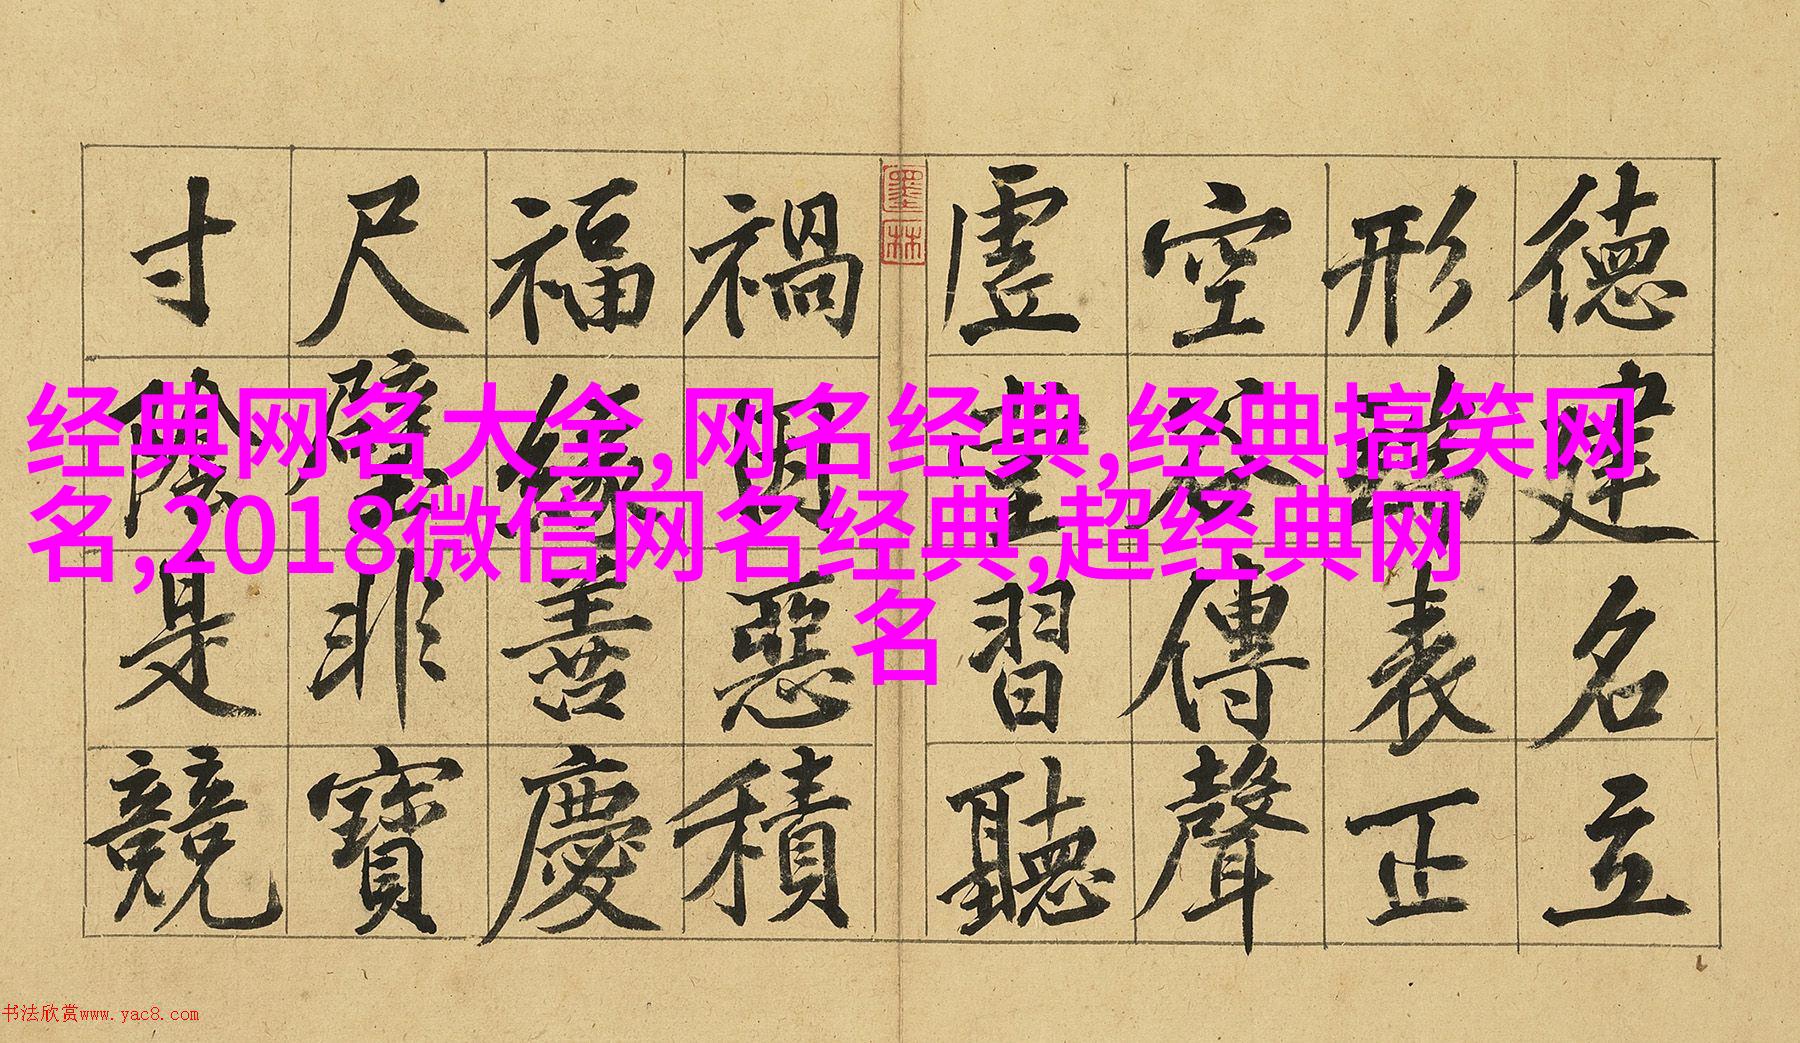 德建名立
形端表正
空谷傳聲
虛堂習聽
墨林
禍因惡積
福緣善慶
尺璧非寶
寸陰是競
经典网名大全,网名经典,经典搞笑网
名,2018微信网名经典,超经典网
名
书法欣赏www.yac8.com